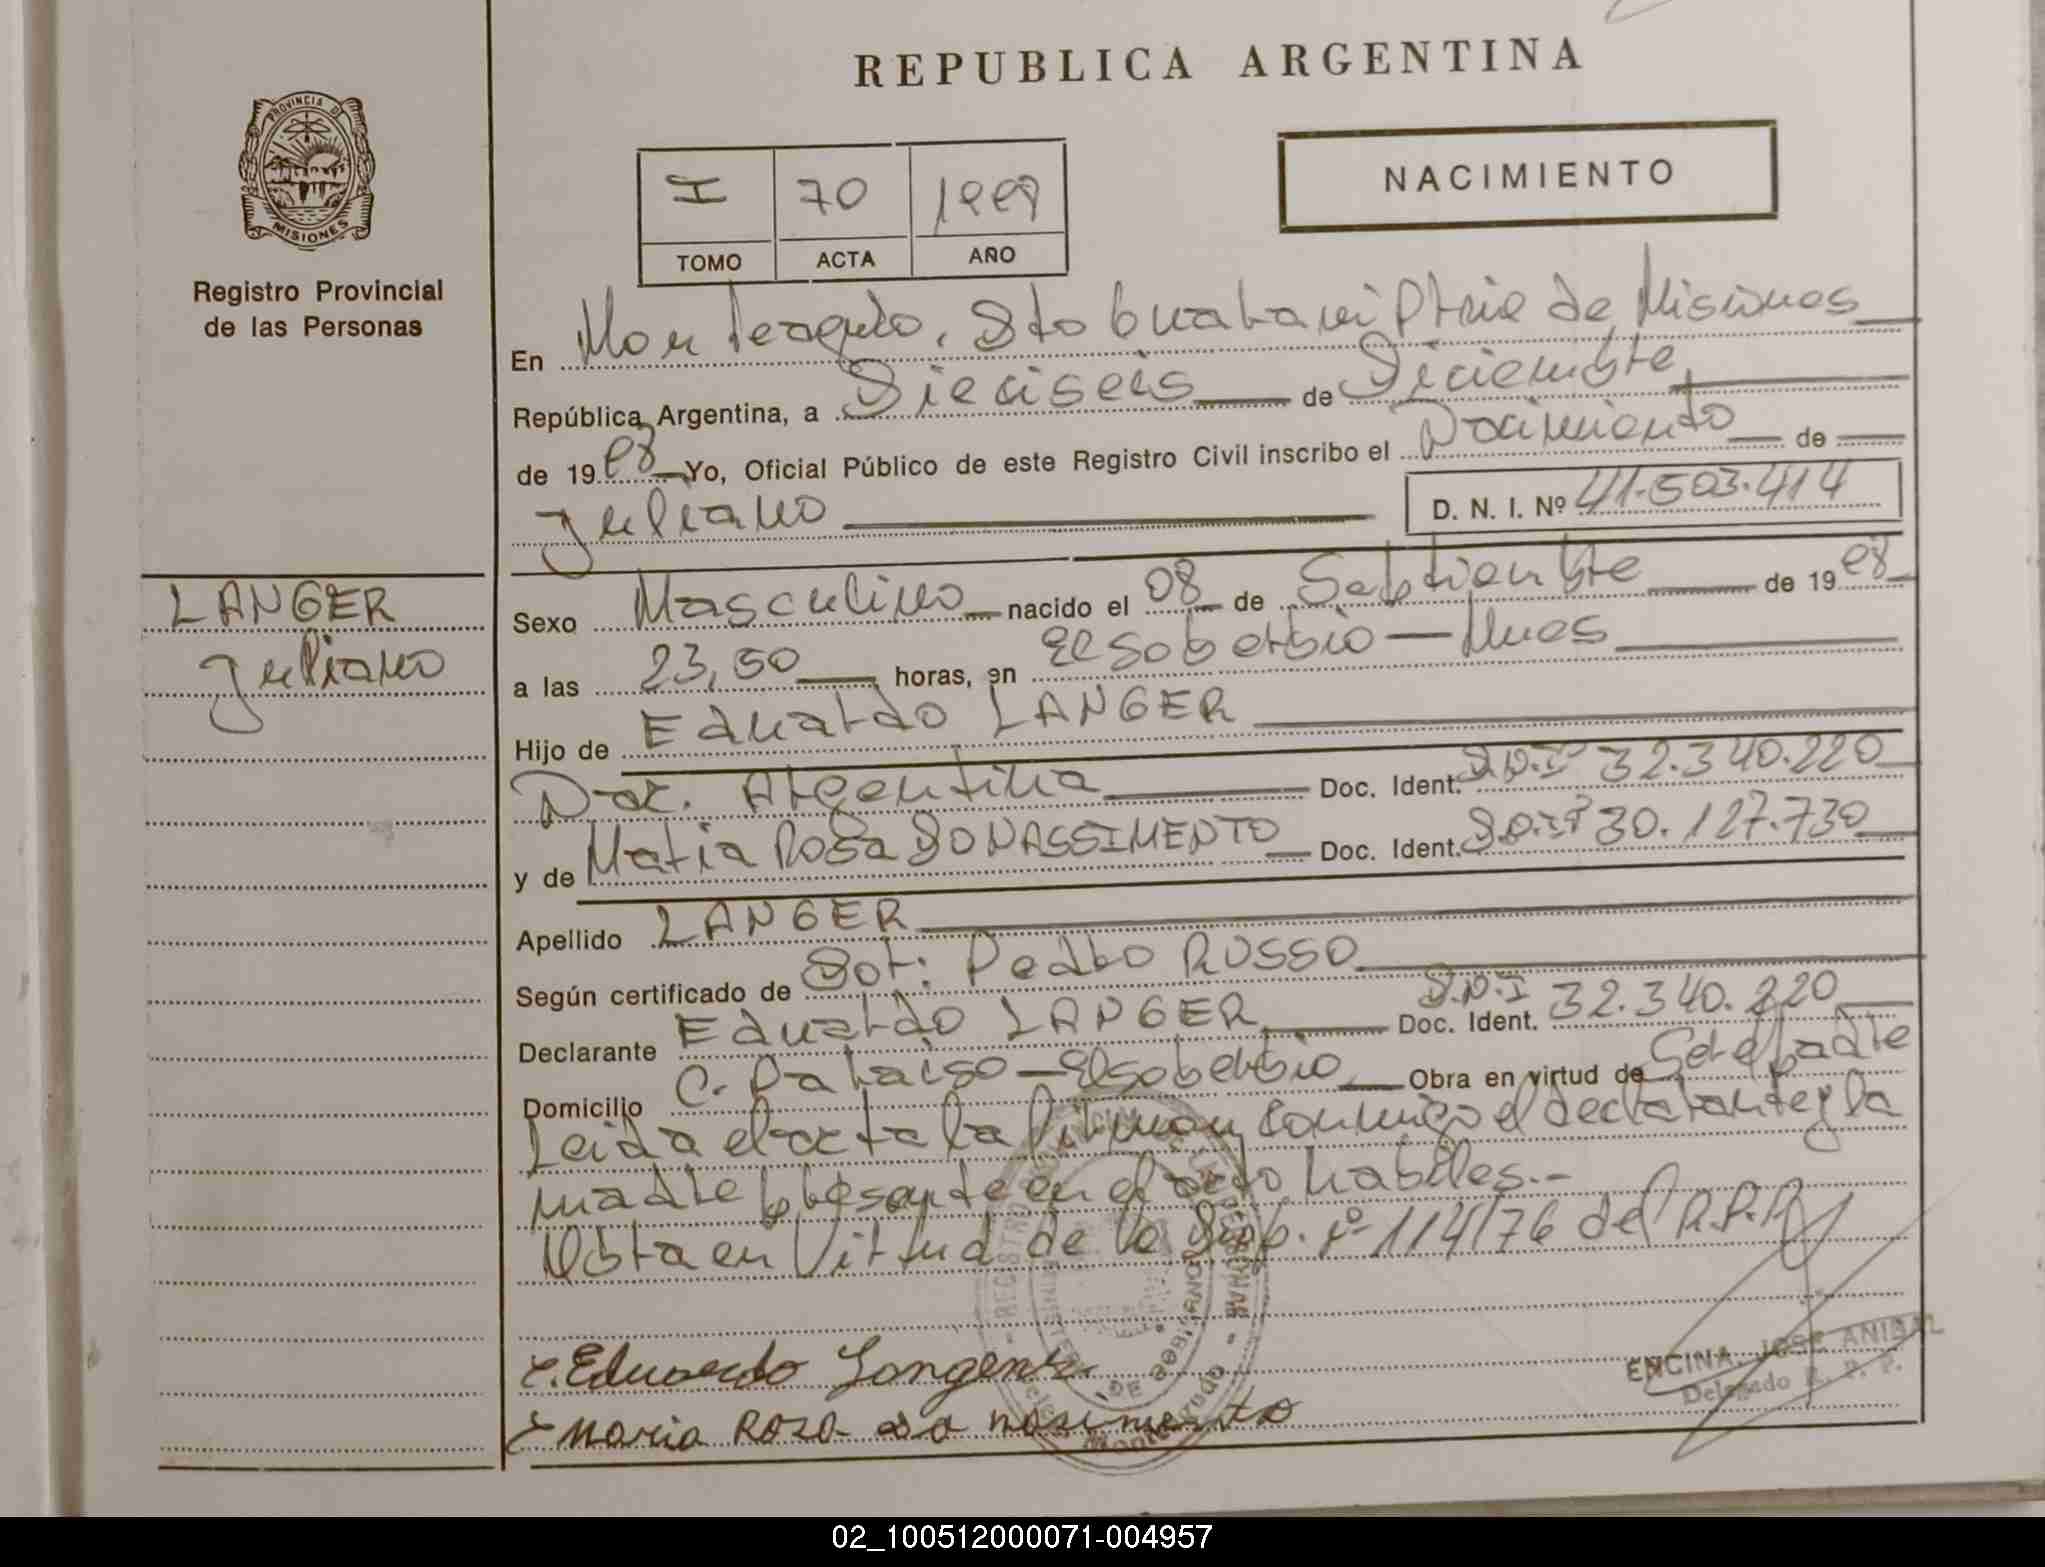 REPUBLICA ARGENTINA
PROVINCIA DE
MISIONES
Registro Provincial
de las Personas
I 70 1998
TOMO ACTA AÑO
NACIMIENTO
En Monteagudo, Dto Guarani Pcia de Misiones
República Argentina, a Dieciseis de Diciembre
de 1998 Yo, Oficial Público de este Registro Civil inscribo el Nacimiento de
Juliano
D. N. I. Nº 41.503.414
LANGER
Juliano
Sexo Masculino nacido el 08 de Septiembre de 1998
a las 23,50 horas, en El Soberbio - Mnes
Hijo de Eduardo LANGER
Nac. Argentina Doc. Ident. D.N.I 32.340.220
y de Maria Rosa DO NASSIMENTO Doc. Ident. D.N.I 30.127.730
Apellido LANGER
Según certificado de Pedro RUSSO
Declarante Eduardo LANGER Doc. Ident. D.N.I 32.340.220
Domicilio C. Paraiso - El Soberbio Obra en virtud de Ser el padre
Leida el acta la firman conmigo el declarante y la
madre presente en el acto, habiles.-
Obra en Virtud de la Disp. nº 114/76 del R.P.P.
Eduardo
Maria Rosa do nasimento
ENCINA, JOSE ANIBAL
Delegado R. P. P.
02_100512000071-004957